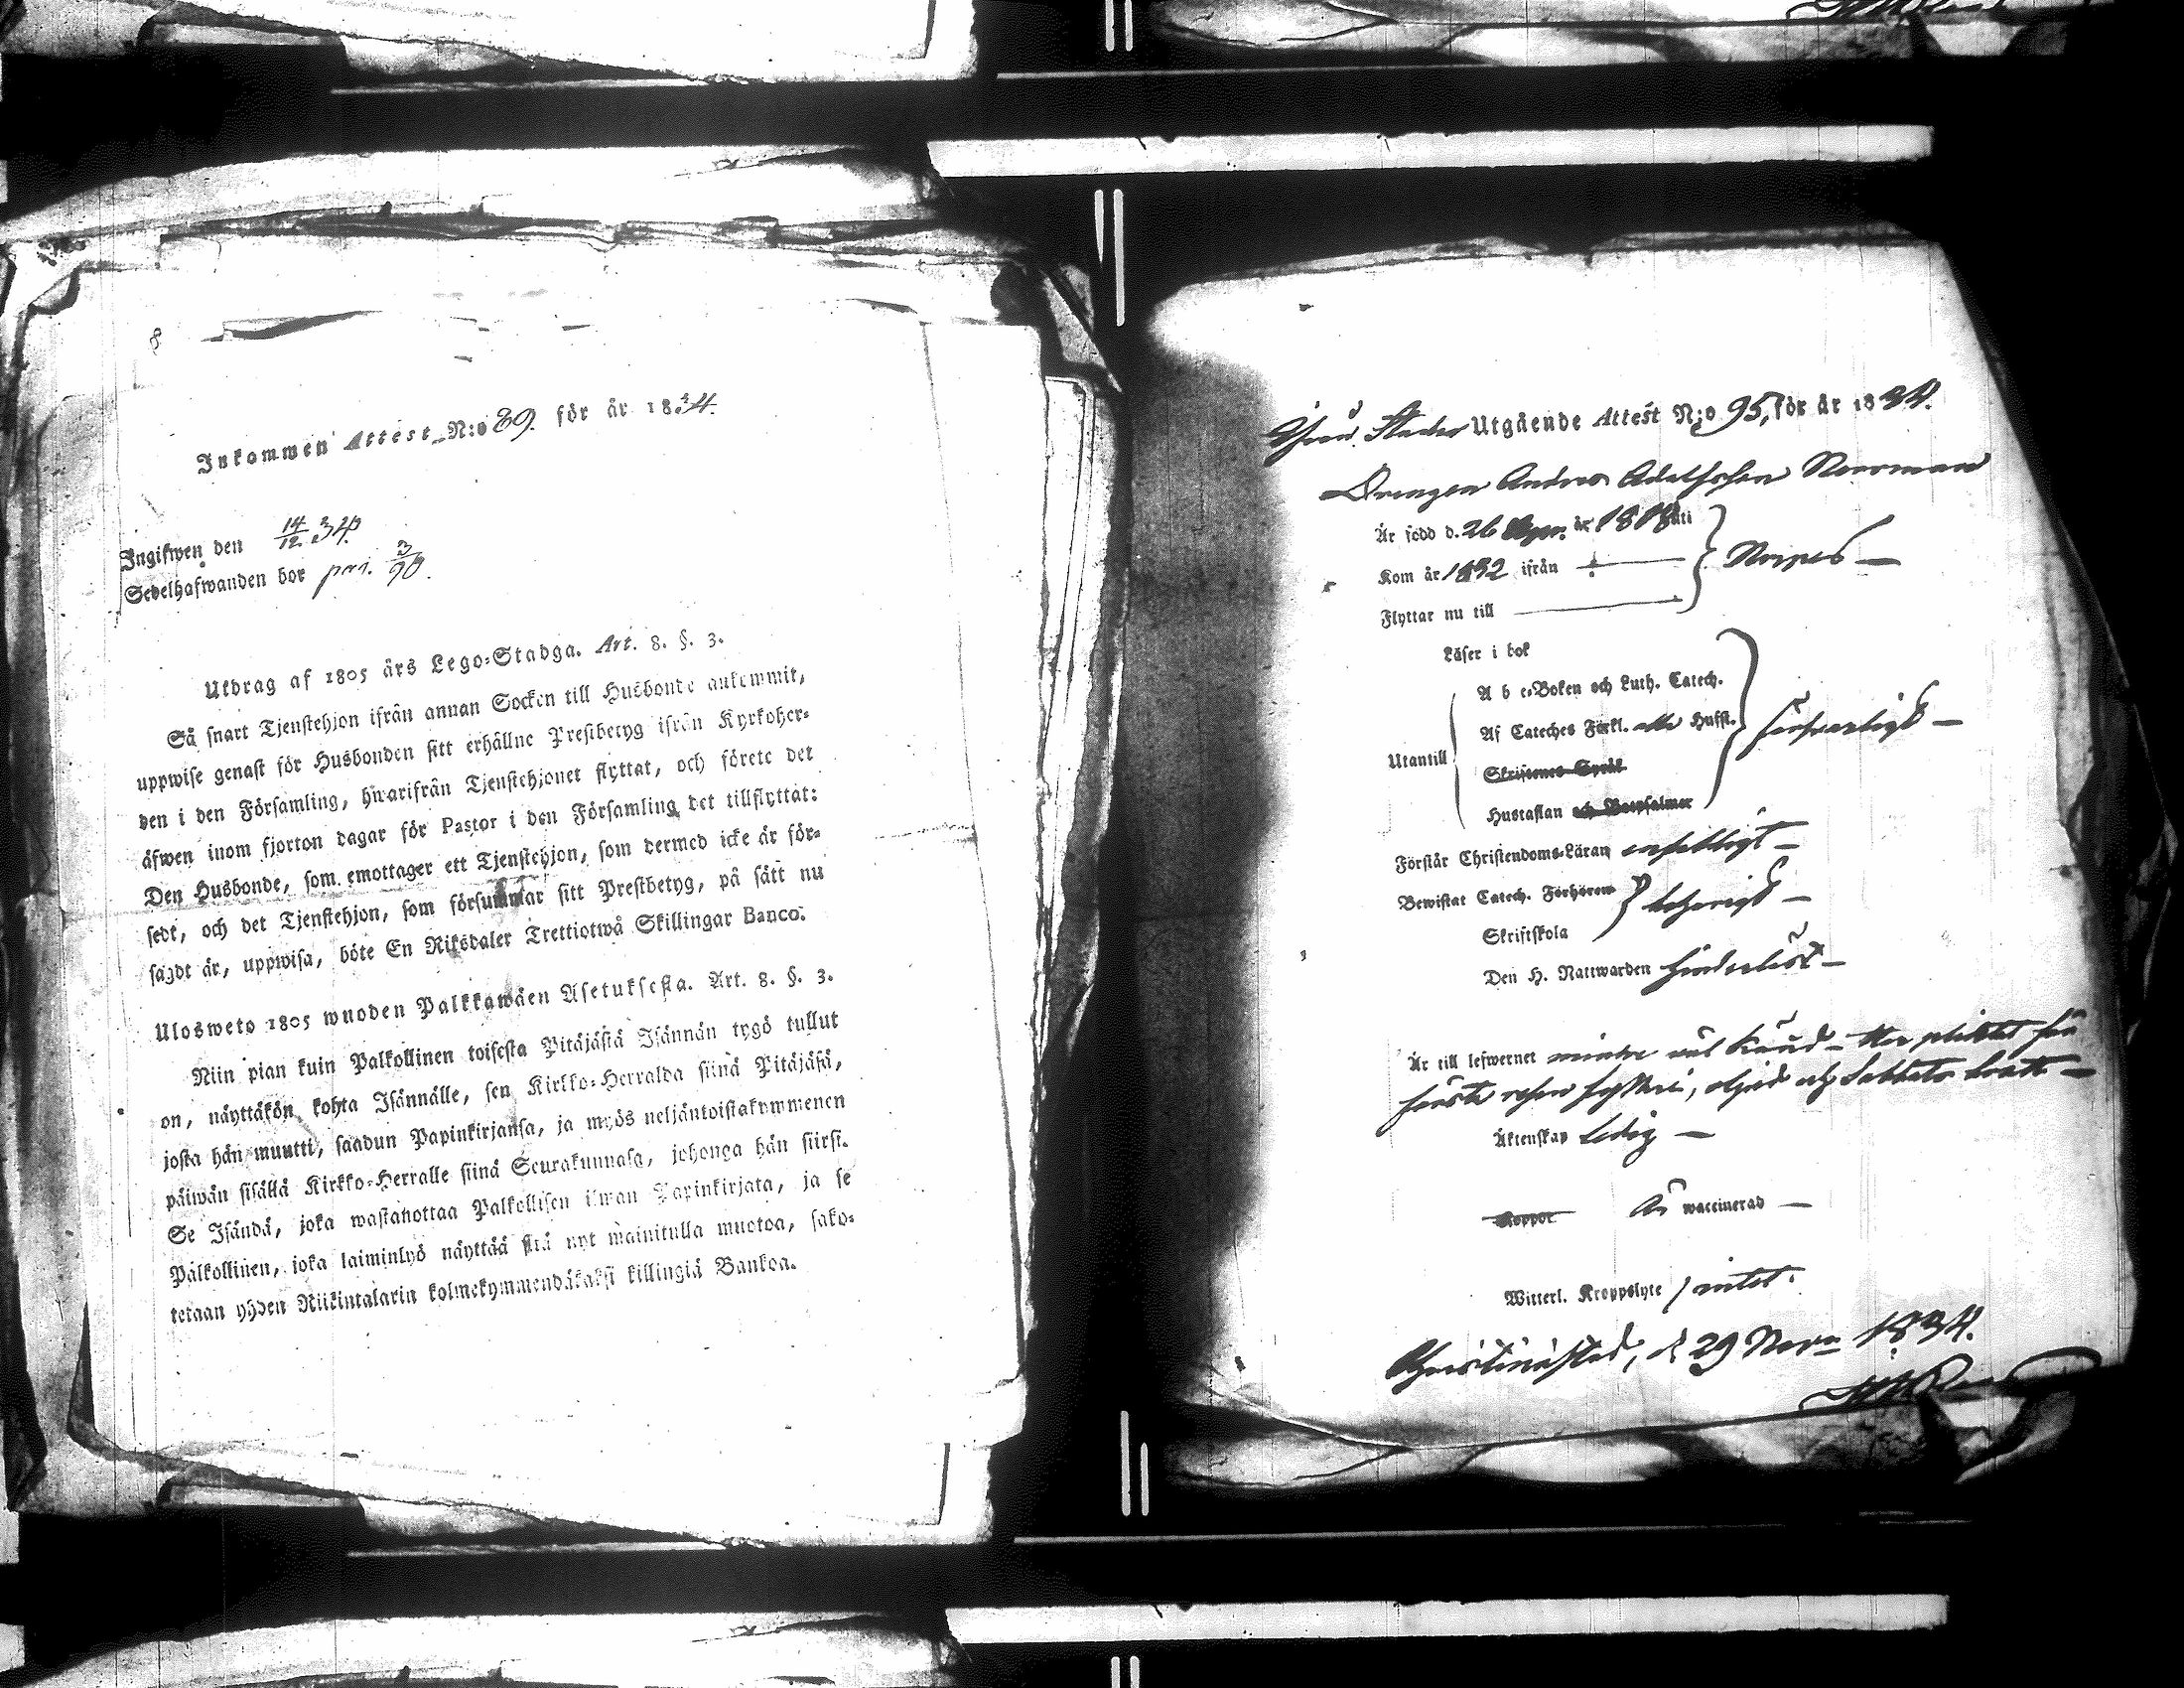 Inkommen Attest N:o 89. för år 1834.
Ingifwen den 14/12 34.
Sedelhafwanden bor pag. 3/90.
Utdrag af 1805 års Lego-Stadga. Art. 8. §. 3.
Så snart Tjenstehjon ifrån annan Socken till Husbonde ankommit,
uppwise genast för Husbonden sitt erhållne Prestbetyg ifrån Kyrkoher-
den i den Församling, hwarifrån Tjenstehjonet flyttat, och förete det
äfwen inom fjorton dagar för Pastor i den Församling det tillflyttat:
Den Husbonde, som emottager ett Tjenstehjon, som dermed icke är för-
sedt, och det Tjenstehjon, som försummar sitt Prestbetyg, på sätt nu
sagdt är, uppwisa, böte En Riksdaler Trettiotwå Skillingar Banco.
Ulosweto 1805 wuoden Palkkawäen Asetuksesta. Art. 8. §. 3.
Niin pian kuin Palkollinen toisesta Pitäjästä Isännän tygö tullut
on, näyttäkön kohta Isännälle, sen Kirkko-Herralda siinä Pitäjäsä,
josta hän muutti, saadun Papinkirjansa, ja myös neljäntoistakymmenen
päiwän sisällä Kirkko-Herralle siinä Seurakunnasa, johonga hän siirsi.
Se Isändä, joka wastanottaa Palkollisen ilman Papinkirjata, ja se
Palkollinen, joka laiminlyö näyttää sitä nyt mainitulla muotoa, sako-
tetaan yhden Riikintalarin kolmekymmendäkaksi killingiä Bankoa.
Utgående Attest N:o 95, för år 1834.
Drengen Anders Adolfsson Norrman
Är född d. 26 år 1818 uti
Kom år 1832 ifrån
Norpes
Flyttar nu till
Läser i bok
A b c-Boken och Luth. Catech.
Af Cateches Förkl. alla Hufst.
försvarligt
Utantill
Skriftenes Språk
Hustaflan och Botpsalmer
Förstår Christendoms-Läran enfaldigt
Bewistat Catech. Förhören
behörigt
Skriftskola
Den H. Nattwarden hinderlöst
Är till lefwernet mindre väl känd – Har pliktat för
första resan och Sabbats brott
Äktenskap ledig
Koppor Är waccinerad
Witterl. Kroppslyte intet.
Christinæstad, d. 29 Novr 1834.